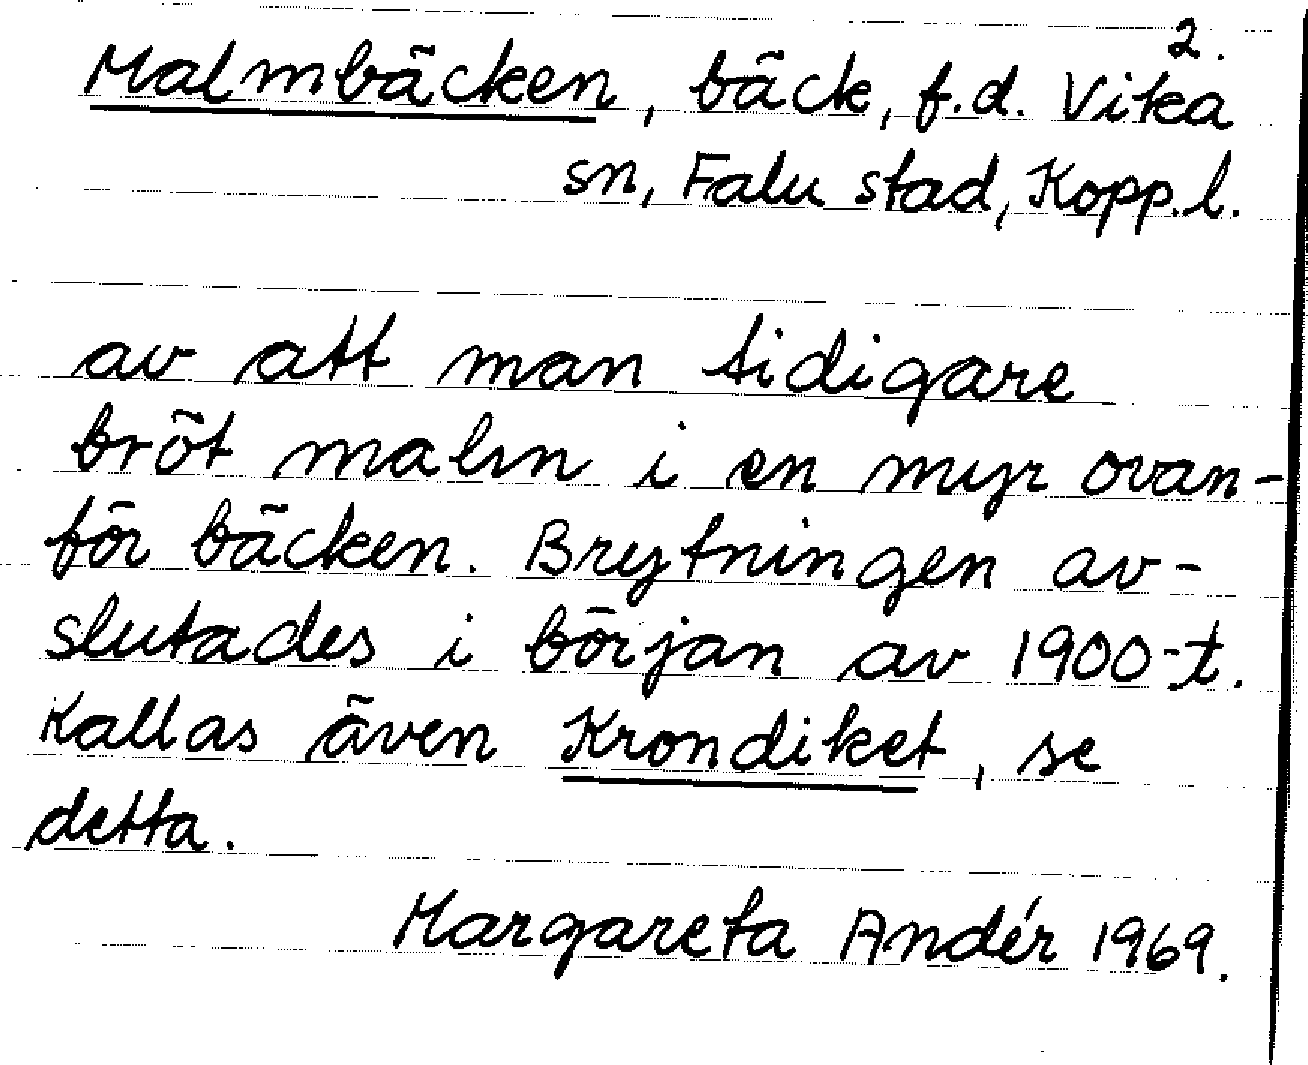 2.
Malmbäcken, bäck, f.d. Vika
sn, Falu stad, Kopp.l.
av att man tidigare
bröt malm i en myr ovan-
för bäcken. Brytningen av-
slutades i början av 1900-t.
Kallas även Krondiket, se
detta.
Margareta Andér 1969.